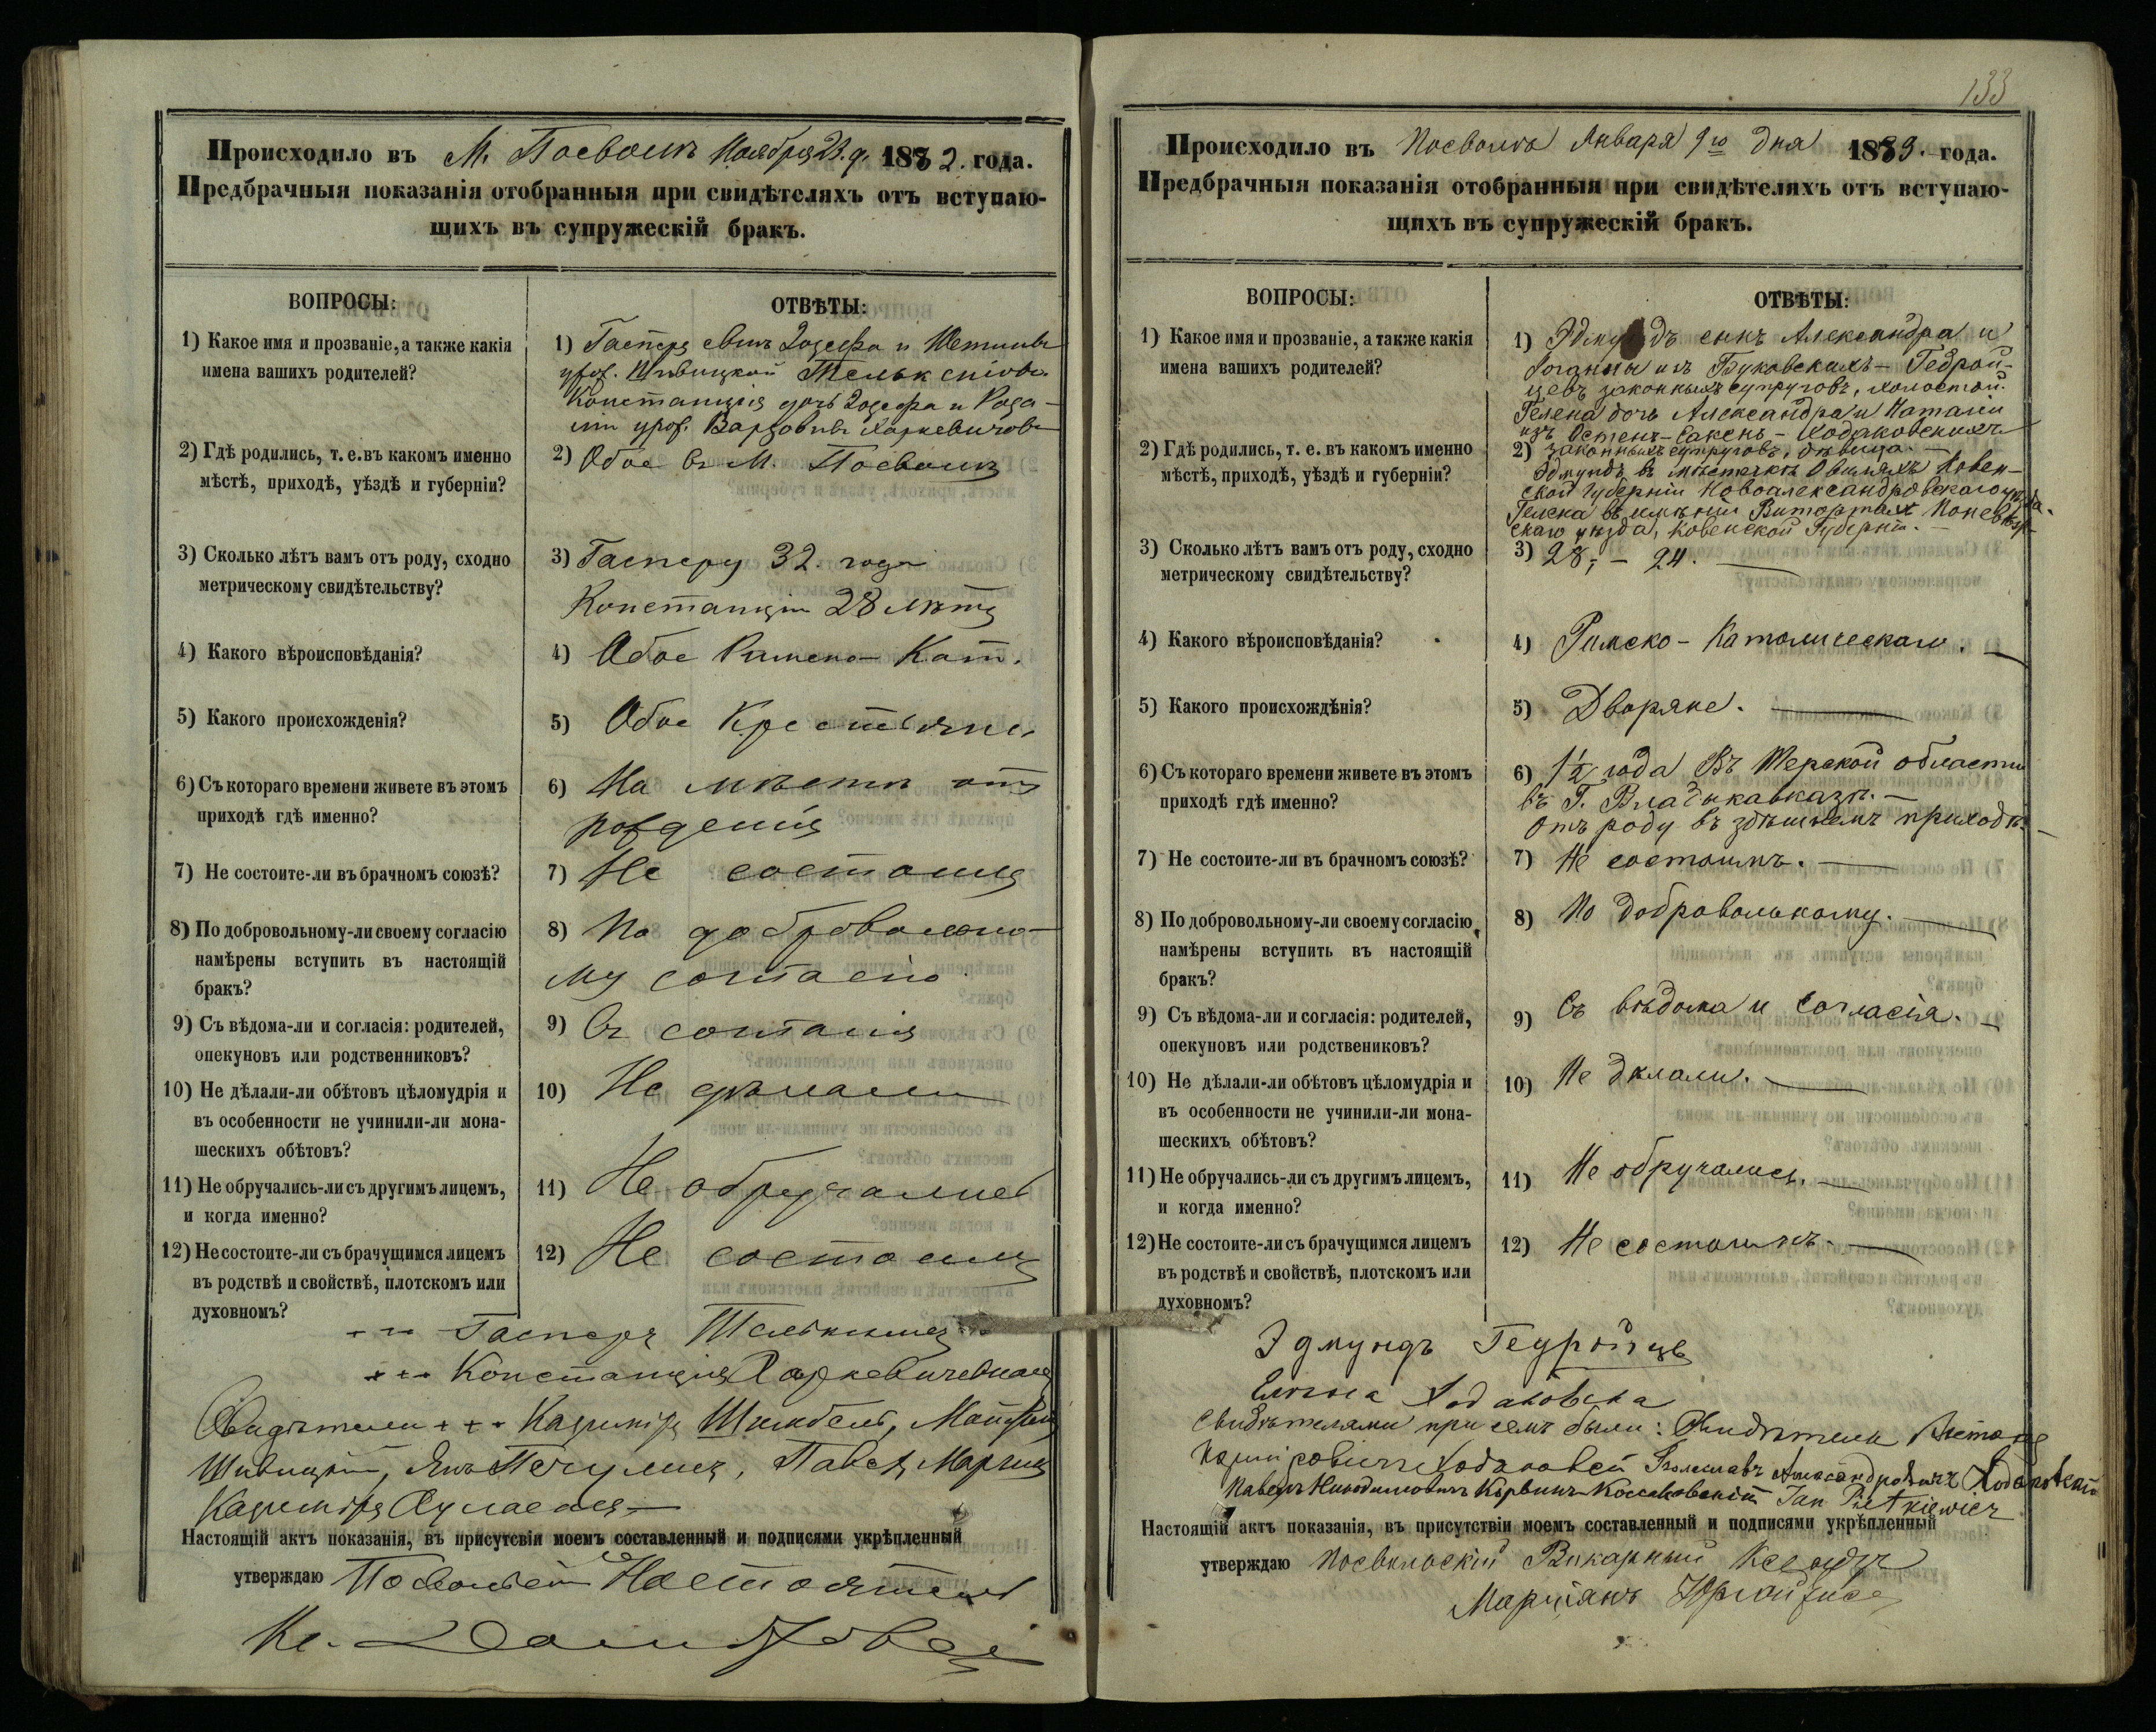 Происходило въ М. Посволь Ноября 23. д. 1882. года.
Предбрачныя показанія отобранныя при свидѣтеляхъ отъ вступаю-
щихъ въ супружескій бракъ.
ВОПРОСЫ: ОТВѢТЫ:
1) Какое имя и прозваніе, а также какія
имена вашихъ родителей?
1) Гаспера сынъ Іозефа и
урож. 
Констанція дочь Іозефа и Роза-
ліи урож. Харкевичовъ
2) Гдѣ родились, т. е. въ какомъ именно
мѣстѣ, приходѣ, уѣздѣ и губерніи?
2) Обое въ М. Посволь
3) Сколько лѣтъ вамъ отъ роду, сходно
метрическому свидѣтельству?
3) Гасперу 32. года
Констанціи 28 лѣтъ
4) Какого вѣроисповѣданія?
4) Обое Римско-Кат.
5) Какого происхожденія?
5) Обое Крестьяне.
6) Съ котораго времени живете въ этомъ
приходѣ гдѣ именно?
6) На мѣстѣ отъ
рожденія
7) Не состоите-ли въ брачномъ союзѣ?
7) Не состоимъ
8) По добровольному-ли своему согласію
намѣрены вступить въ настоящій
бракъ?
8) По доброволно-
му согласію.
9) Съ вѣдома-ли и согласія: родителей,
опекуновъ или родственниковъ?
9) Съ согласія
10) Не дѣлали-ли обѣтовъ цѣломудрія и
въ особенности не учинили-ли мона-
шескихъ обѣтовъ?
10) Не дѣлали
11) Не обручались-ли съ другимъ лицемъ,
и когда именно?
11) Не обручались
12) Не состоите-ли съ брачущимся лицемъ
въ родствѣ и свойствѣ, плотскомъ или
духовномъ?
12) Не состоимъ
+ + + Гасперъ
+ + + Констанція Харкевичевна
Свидѣтели + + + Казиміръ Шимбель,
Янъ Павелъ
Казиміръ
Настоящій актъ показанія, въ присутсвіи моемъ составленный и подписями укрѣпленный
утверждаю Посвольскій Настоятель
Кс.
133
Происходило въ Посволь Января 9го дня 1883. года.
Предбрачныя показанія отобранныя при свидѣтеляхъ отъ вступаю-
щихъ въ супружескій бракъ.
ВОПРОСЫ: ОТВѢТЫ:
1) Какое имя и прозваніе, а также какія
имена вашихъ родителей?
1) Эдмундъ сынъ Александра и
Іоганны изъ Буковскихъ - Гедрой-
цевъ законныхъ супруговъ, холостой.
Гелена дочь Александра и Наталіи
изъ Остенъ-Сакенъ - Ходаковскихъ
законныхъ супруговъ, дѣвица. -
2) Гдѣ родились, т. е. въ какомъ именно
мѣстѣ, приходѣ, уѣздѣ и губерніи?
2) Эдмундъ въ мѣстечкѣ Овиляхъ Ковен-
ской Губерніи Новоалександровскаго уѣзда.
Гелена въ имѣніи Поневѣж-
скаго уѣзда, Ковенской Губерніи. -
3) Сколько лѣтъ вамъ отъ роду, сходно
метрическому свидѣтельству?
3) 28, - 24.
4) Какого вѣроисповѣданія?
4) Римско-Католическаго. -
5) Какого происхождѣнія?
5) Дворяне.
6) Съ котораго времени живете въ этомъ
приходѣ гдѣ именно?
6) 1½ года Въ Терской области
въ Г. Владыкавказѣ. -
Отъ роду въ здѣшнемъ приходѣ. -
7) Не состоите-ли въ брачномъ союзѣ?
7) Не состоимъ.
8) По добровольному-ли своему согласію,
намѣрены вступить въ настоящій
бракъ?
8) По добровольному.
9) Съ вѣдома-ли и согласія: родителей,
опекуновъ или родствениковъ?
9) Съ вѣдома и согласія. -
10) Не дѣлали-ли обѣтовъ цѣломудрія и
въ особенности не учинили-ли мона-
шескихъ обѣтовъ?
10) Не дѣлали.
11) Не обручались-ли съ другимъ лицемъ,
и когда именно?
11) Не обручались.
12) Не состоите-ли съ брачущимся лицемъ
въ родствѣ и свойствѣ, плотскомъ или
духовномъ?
12) Не состоимъ.
Эдмундъ Гедройцъ
Елена Ходаковска
Свидѣтелями при семъ были: Свидѣтель
Ходаковскій Болеславъ Александровичъ Ходаковскій
Павелъ Никодимовичъ Корвинъ-Коссаковскій Jan Pietkiewicz
Настоящій актъ показанія, въ присутствіи моемъ составленный и подписями укрѣпленный
утверждаю Посвольскій Викарный Ксендзъ
Марціянъ